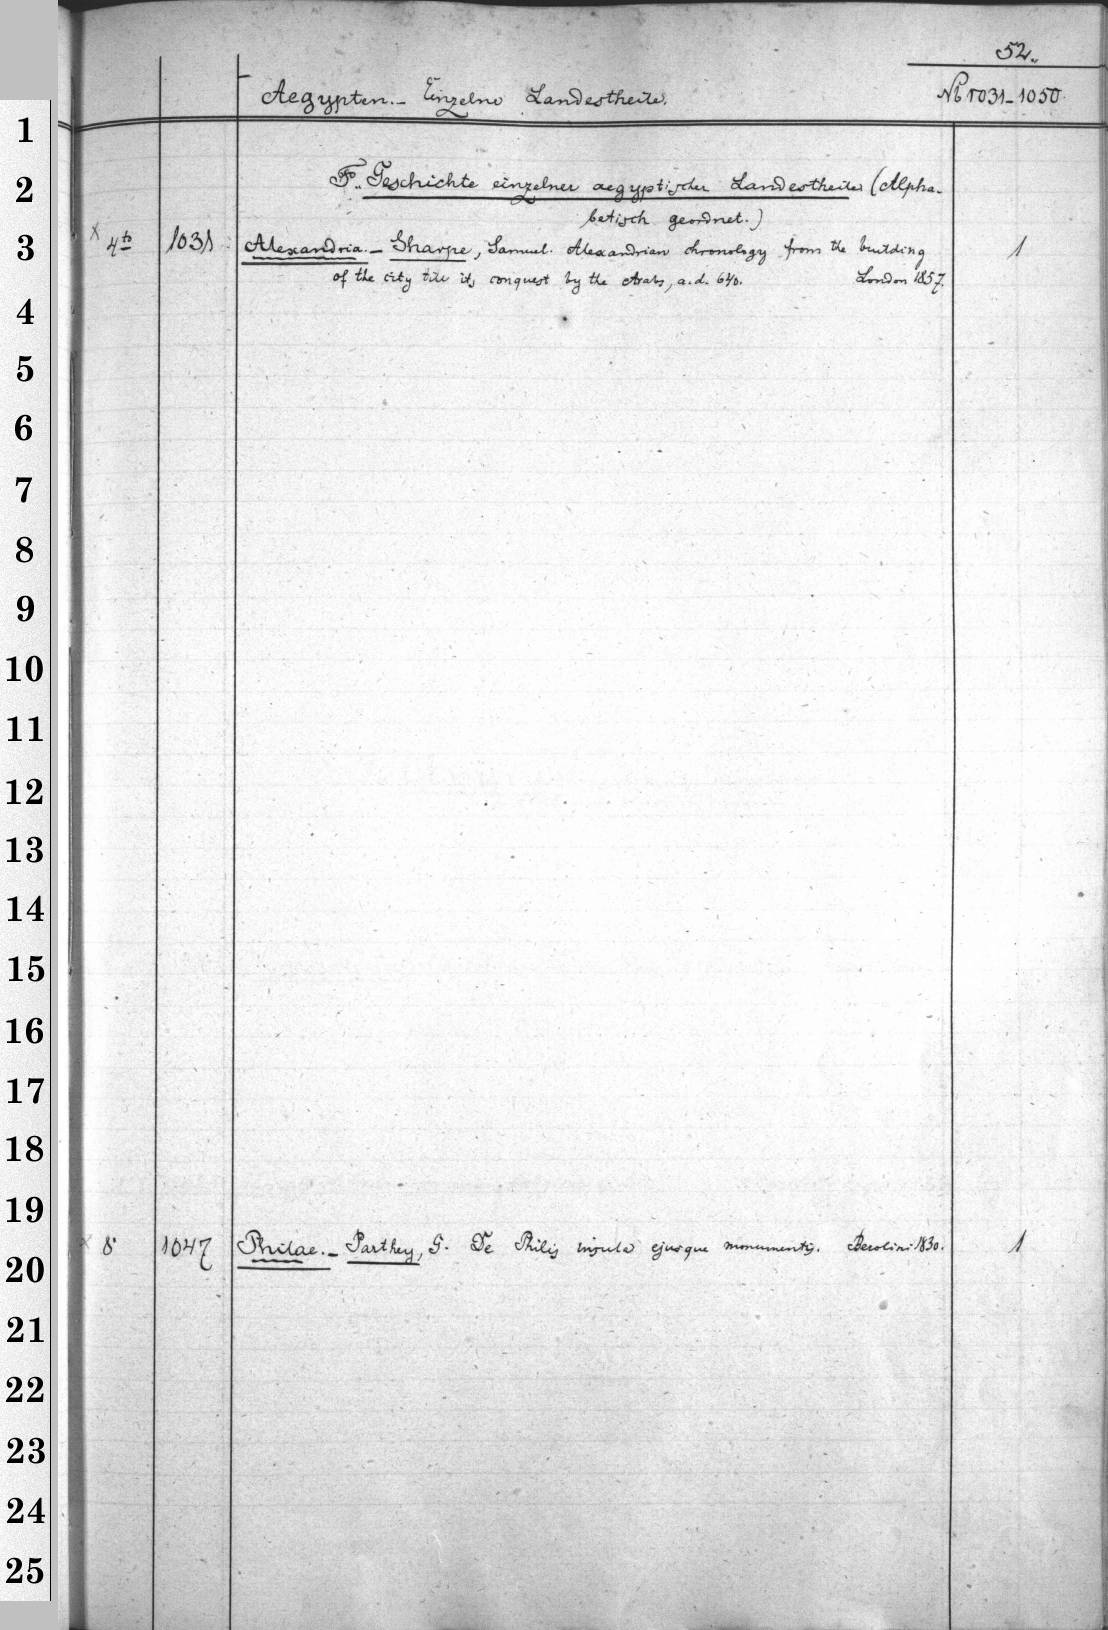 52.
Aegypten. – Einzelne Landestheile.
No 1031–1050.
1
2
F. Geschichte einzelner aegyptischer Landestheile (Alpha-
betisch geordnet.)
3
x 4to 1031 Alexandria. – Sharpe, Samuel. Alexandrian chronology from the building 1
of the city till its conquest by the Arabs, a.d. 640. London 1857.
4
5
6
7
8
9
10
11
12
13
14
15
16
17
18
19
x 8 1047 Philae. – Parthey, G. De Philis insula ejusque monumentis. Berolini 1830. 1
20
21
22
23
24
25